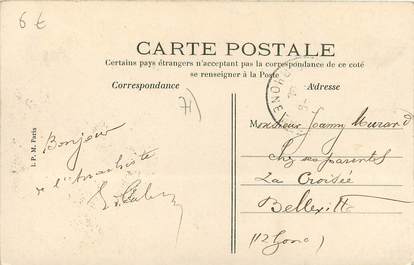 6 €
CARTE POSTALE
Certains pays étrangers n'acceptant pas la correspondance de ce coté
se renseigner à la Poste
Correspondance
Adresse
71
I. P. M. Paris
Bonjour
de l'Anarchiste
Monsieur Joanny Murard
Chez ses parents
La Croisée
Belleville
(Rhône)
RHONE